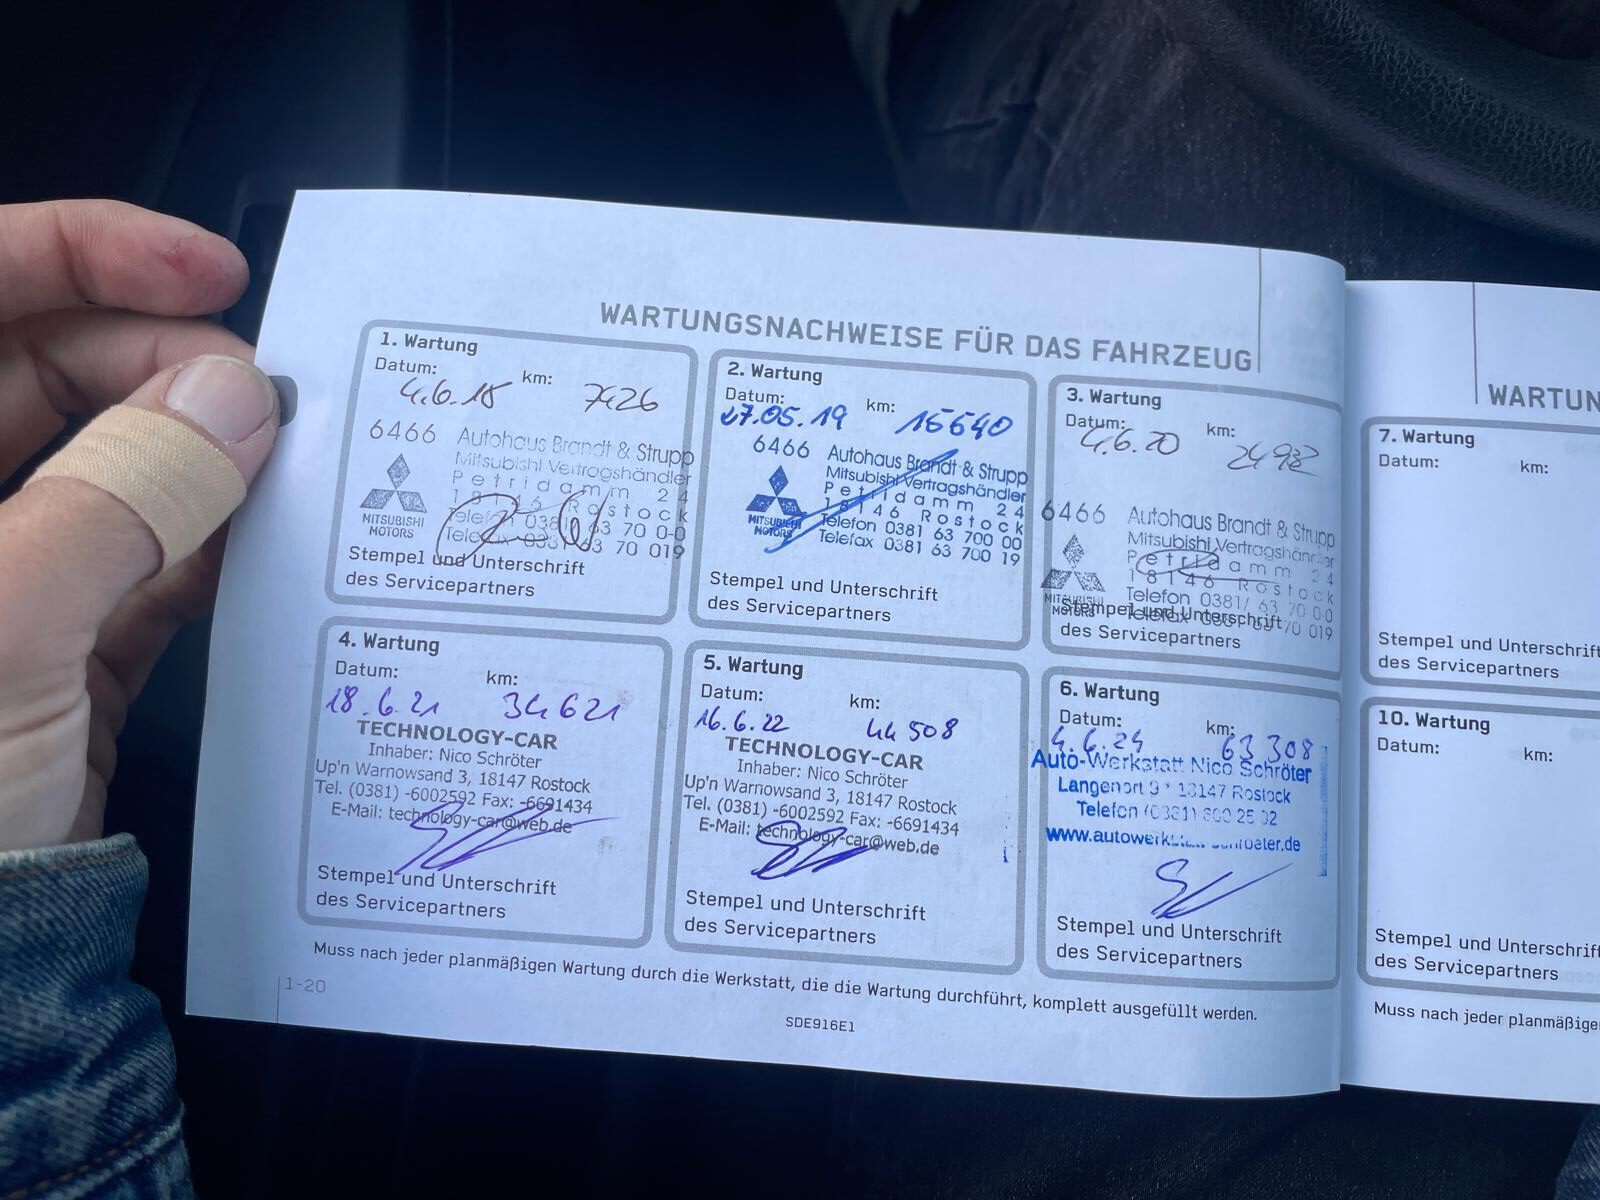 WARTUNGSNACHWEISE FÜR DAS FAHRZEUG
1. Wartung
Datum: km:
4.6.18 7426
6466 Autohaus Brandt & Strupp
Mitsubishi Vertragshändler
Petridamm 24
18146 Rostock
Telefon 0381 63 70 0-0
Telefax 0381 63 70 019
MITSUBISHI
MOTORS
Stempel und Unterschrift
des Servicepartners
2. Wartung
Datum: km:
27.05.19 15640
6466 Autohaus Brandt & Strupp
Mitsubishi Vertragshändler
Petridamm 24
18146 Rostock
Telefon 0381 63 700 00
Telefax 0381 63 700 19
MITSUBISHI
MOTORS
Stempel und Unterschrift
des Servicepartners
3. Wartung
Datum: km:
4.6.20
6466 Autohaus Brandt & Strupp
Mitsubishi Vertragshändler
Petridamm 24
18146 Rostock
Telefon 0381/ 63 70 0-0
Telefax 0381 63 70 019
MITSUBISHI
MOTORS
Stempel und Unterschrift
des Servicepartners
4. Wartung
Datum: km:
18.6.21 34621
TECHNOLOGY-CAR
Inhaber: Nico Schröter
Up'n Warnowsand 3, 18147 Rostock
Tel. (0381) -6002592 Fax: -6691434
E-Mail: technology-car@web.de
Stempel und Unterschrift
des Servicepartners
5. Wartung
Datum: km:
16.6.22 44508
TECHNOLOGY-CAR
Inhaber: Nico Schröter
Up'n Warnowsand 3, 18147 Rostock
Tel. (0381) -6002592 Fax: -6691434
E-Mail: technology-car@web.de
Stempel und Unterschrift
des Servicepartners
6. Wartung
Datum: km:
4.6.24 63308
Auto-Werkstatt Nico Schröter
Langenort 9 * 18147 Rostock
Telefon (0381) 600 25 92
Stempel und Unterschrift
des Servicepartners
Muss nach jeder planmäßigen Wartung durch die Werkstatt, die die Wartung durchführt, komplett ausgefüllt werden.
1-20
SDE916E1
WARTUN
7. Wartung
Datum: km:
Stempel und Unterschrift
des Servicepartners
10. Wartung
Datum: km:
Stempel und Unterschrift
des Servicepartners
Muss nach jeder planmäßige